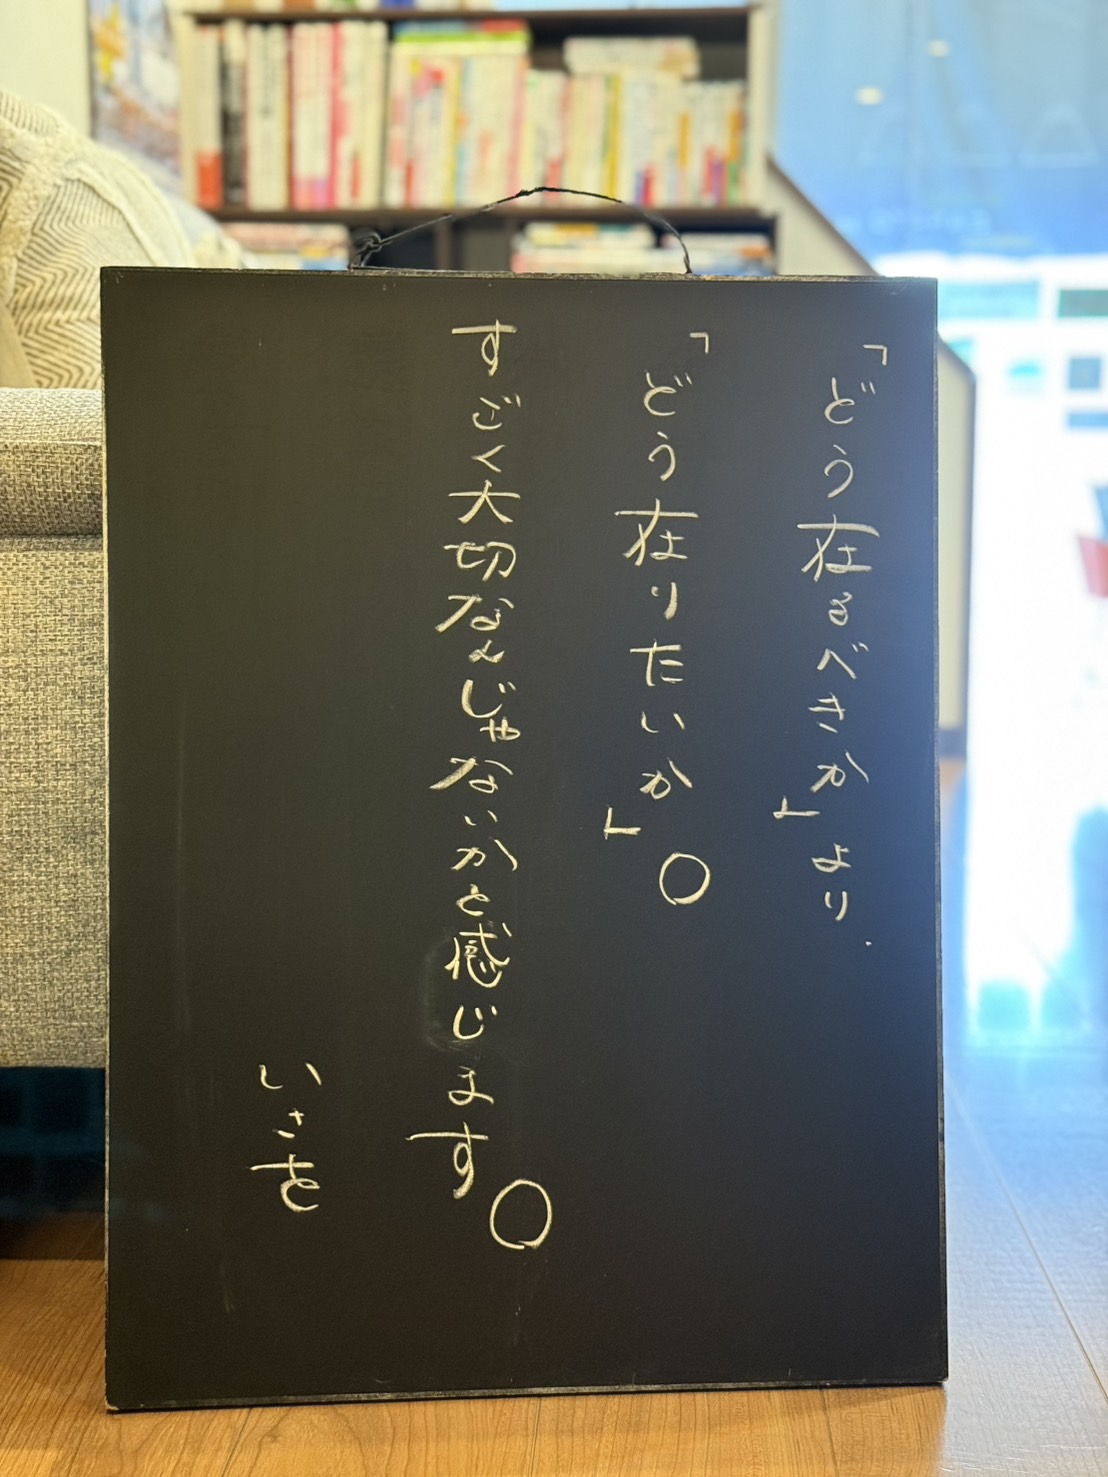 「どう在るべきか」より.
「どう在りたいか」。
すごく大切なんじゃないかと感じます。
いさを